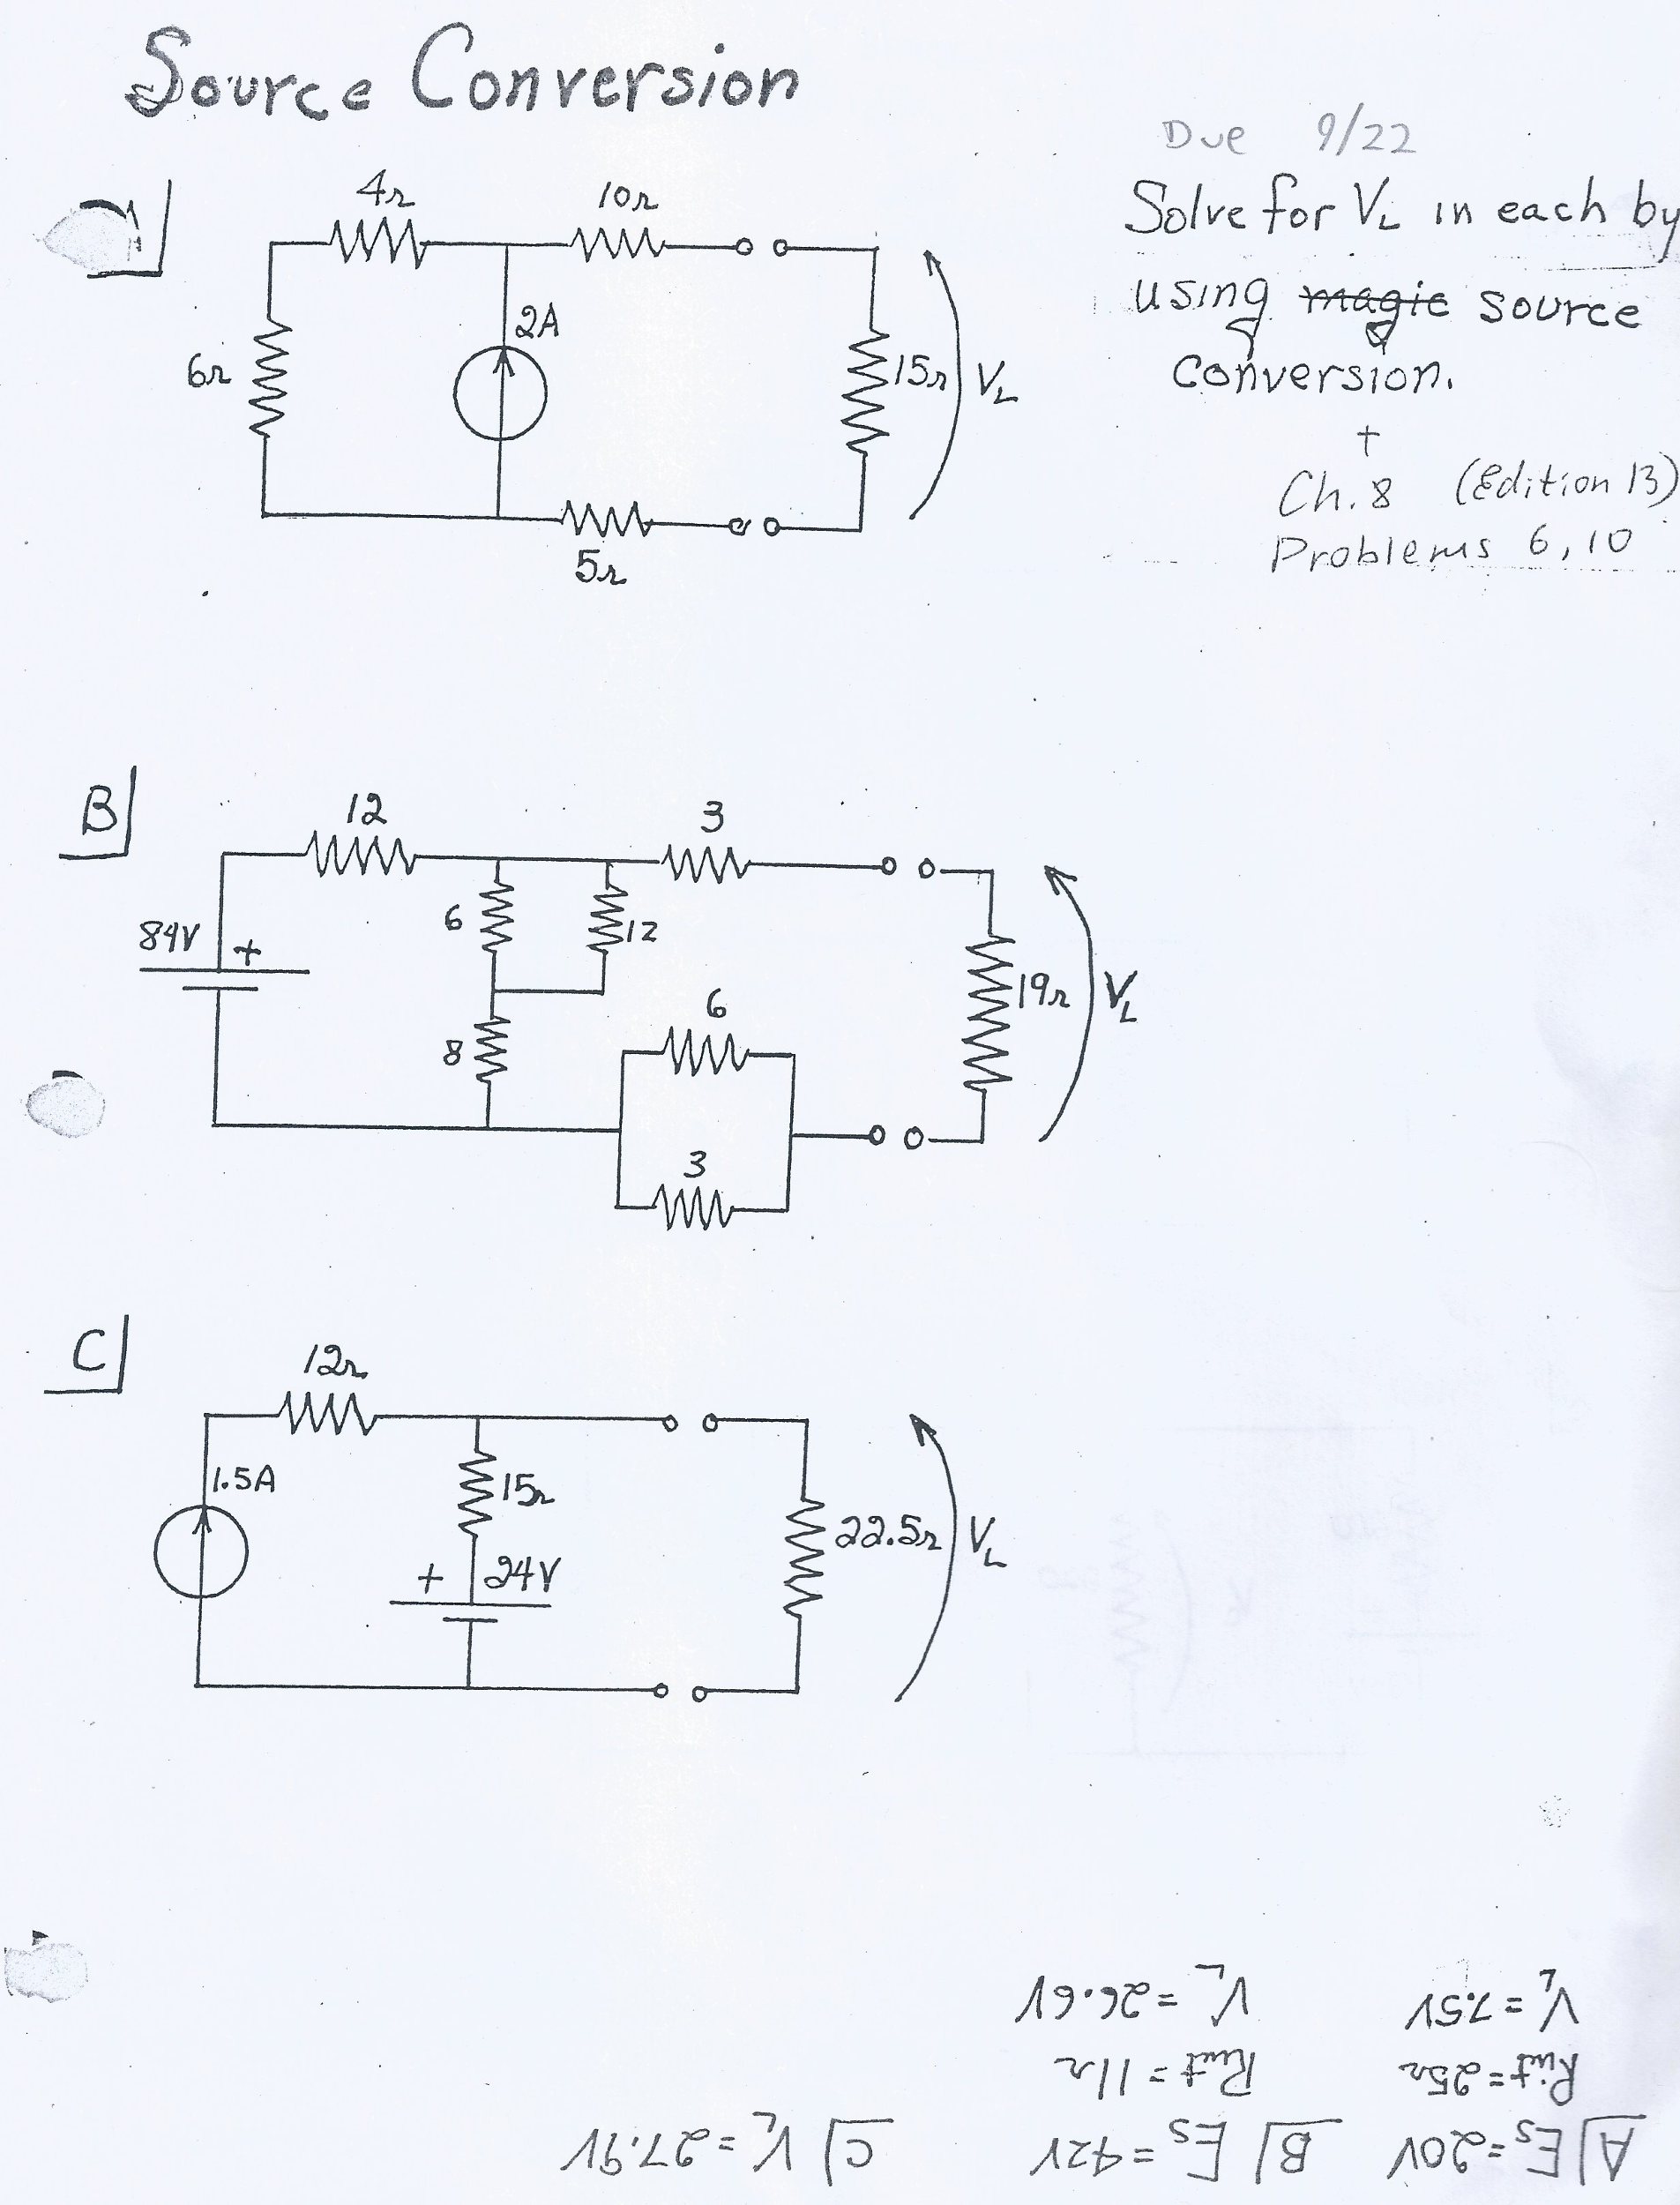 Source Conversion
Due 9/22
Solve for VL in each by
using magic source
conversion.
+
Ch. 8 (Edition 13)
Problems 6, 10
4Ω
10Ω
2A
6Ω
15Ω
VL
5Ω
B
12
3
6
12
84V +
19Ω
VL
6
8
3
C
12Ω
1.5A
15Ω
22.5Ω
VL
+ 24V
A Es=20V
Rint=25Ω
VL=7.5V
B Es=42V
Rint=11Ω
VL=26.6V
C VL=27.9V